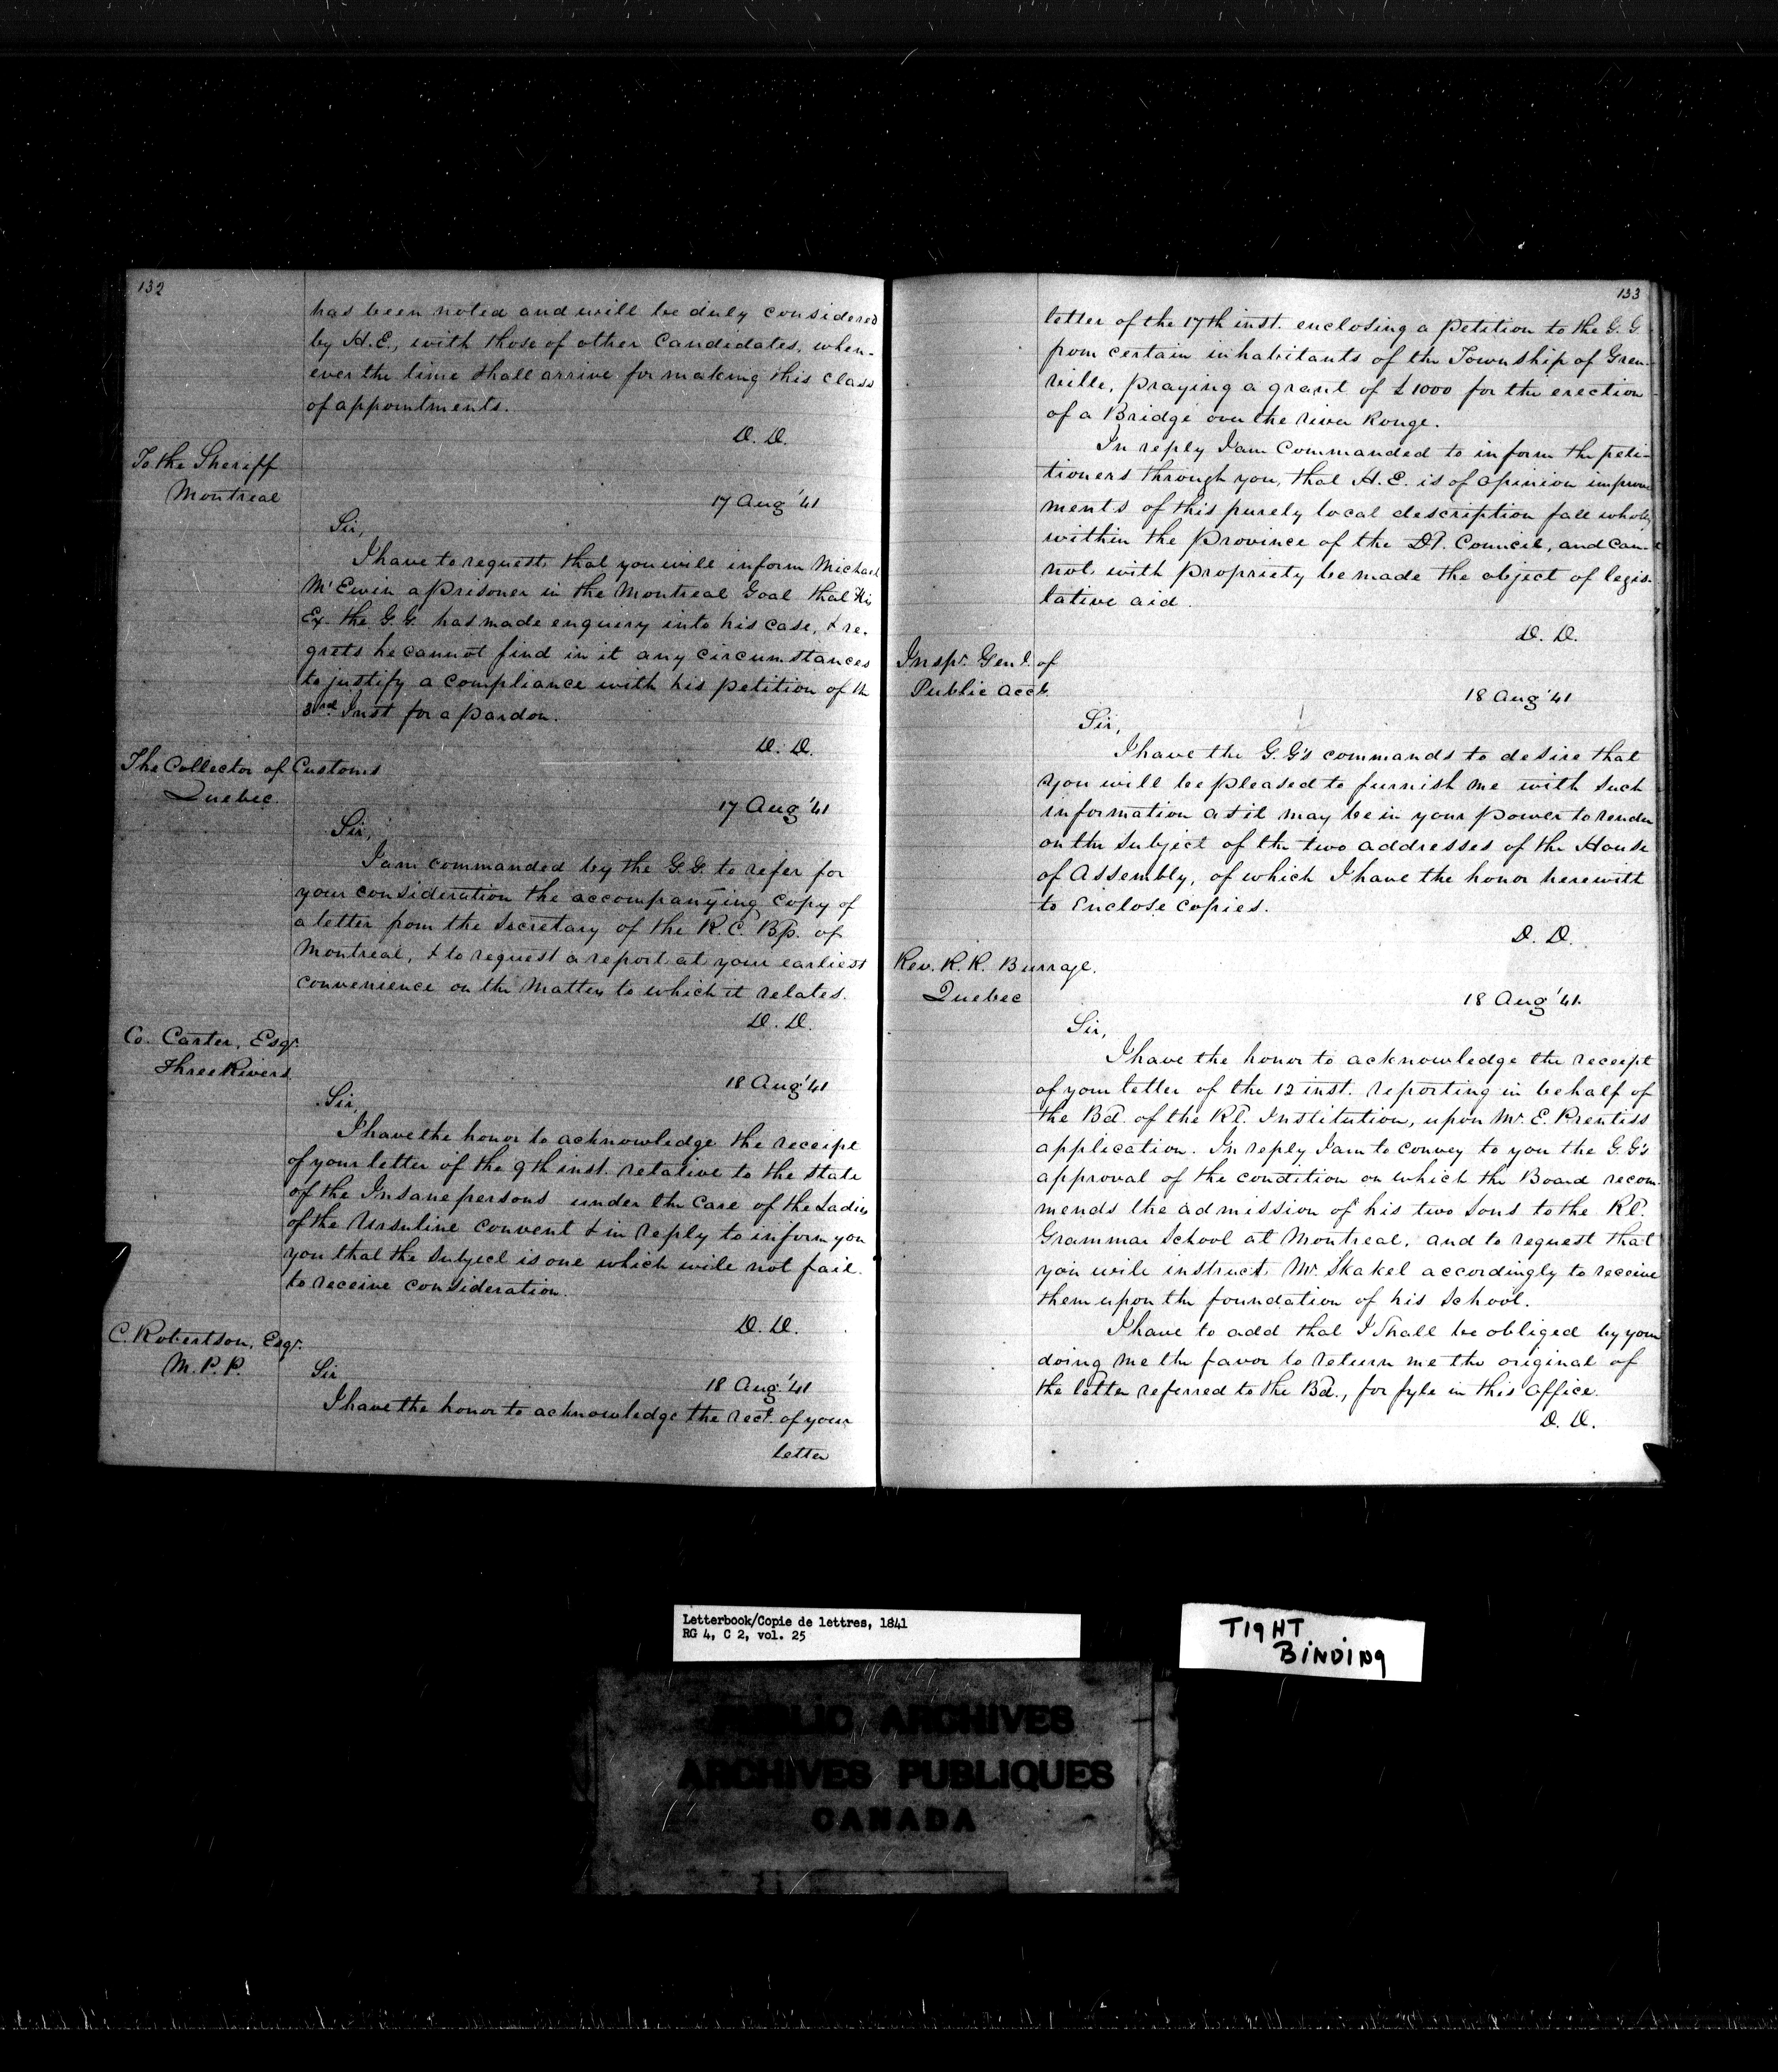 132
has been noted and will be duly considered
by H.E., with those of other Candidates, when-
ever the time shall arrive for making this class
of appointments.
D. D.
To the Sheriff
Montreal
17 Aug '41
Sir,
I have to request that you will inform Michael
Mc Ewin a prisoner in the Montreal Goal that His
Ex. the G.G. has made enquiry into his case, & re-
grets he cannot find in it any circumstances
to justify a compliance with his petition of th
3rd Inst for a pardon.
D. D.
The Collector of Customs
Quebec
17 Aug '41
Sir,
I am commanded by the G.G. to refer for
your consideration the accompanying copy of
a letter from the Secretary of the R.C. Bp. of
Montreal, & to request a report at your earliest
convenience on the Matter to which it relates.
D. D.
Co. Carter, Esqr.
Three Rivers
18 Aug '41
Sir,
I have the honor to acknowledge the receipt
of your letter of the 9th inst. relative to the state
of the Insane persons under the care of the Ladies
of the Ursuline Convent & in reply to inform you
you that the subject is one which will not fail
to receive consideration.
D. D.
C. Robertson, Esqr.
M.P.P.
Sir
18 Aug. '41
I have the honor to acknowledge the rect. of your
letter
133
letter of the 17th inst. enclosing a petition to the G.G
from certain inhabitants of the Township of Gren-
ville, praying a grant of £1000 for the erection
of a Bridge over the river Rouge.
In reply I am Commanded to inform the peti-
tioners through you, that H.E. is of opinion improve
ments of this purely local description fall wholly
within the province of the Dt. Council, and can-
not with propriety be made the object of legis-
lative aid.
D. D.
Inspr. Genl. of
Public Accts.
18 Aug '41
Sir,
I have the G.G's commands to desire that
you will be pleased to furnish me with such
information as it may be in your power to render
on the subject of the two addresses of the House
of Assembly, of which I have the honor herewith
to enclose copies.
D. D.
Rev. R. R. Burrage.
Quebec
18 Aug '41.
Sir,
I have the honor to acknowledge the receipt
of your letter of the 12 inst. reporting in behalf of
the Bd. of the Rl. Institution, upon Mr. E. Prentiss
application. In reply I am to convey to you the G.G's
approval of the condition on which the Board recom-
mends the admission of his two sons to the Rl.
Grammar School at Montreal, and to request that
you will instruct Mr. Skakel accordingly to receive
them upon the foundation of his School.
I have to add that I shall be obliged by your
doing me the favor to return me the original of
the letter referred to the Bd., for fyle in this office.
D. D.
Letterbook/Copie de lettres, 1841
RG 4, C 2, vol. 25
TIGHT
BINDING
PUBLIC ARCHIVES
ARCHIVES PUBLIQUES
CANADA